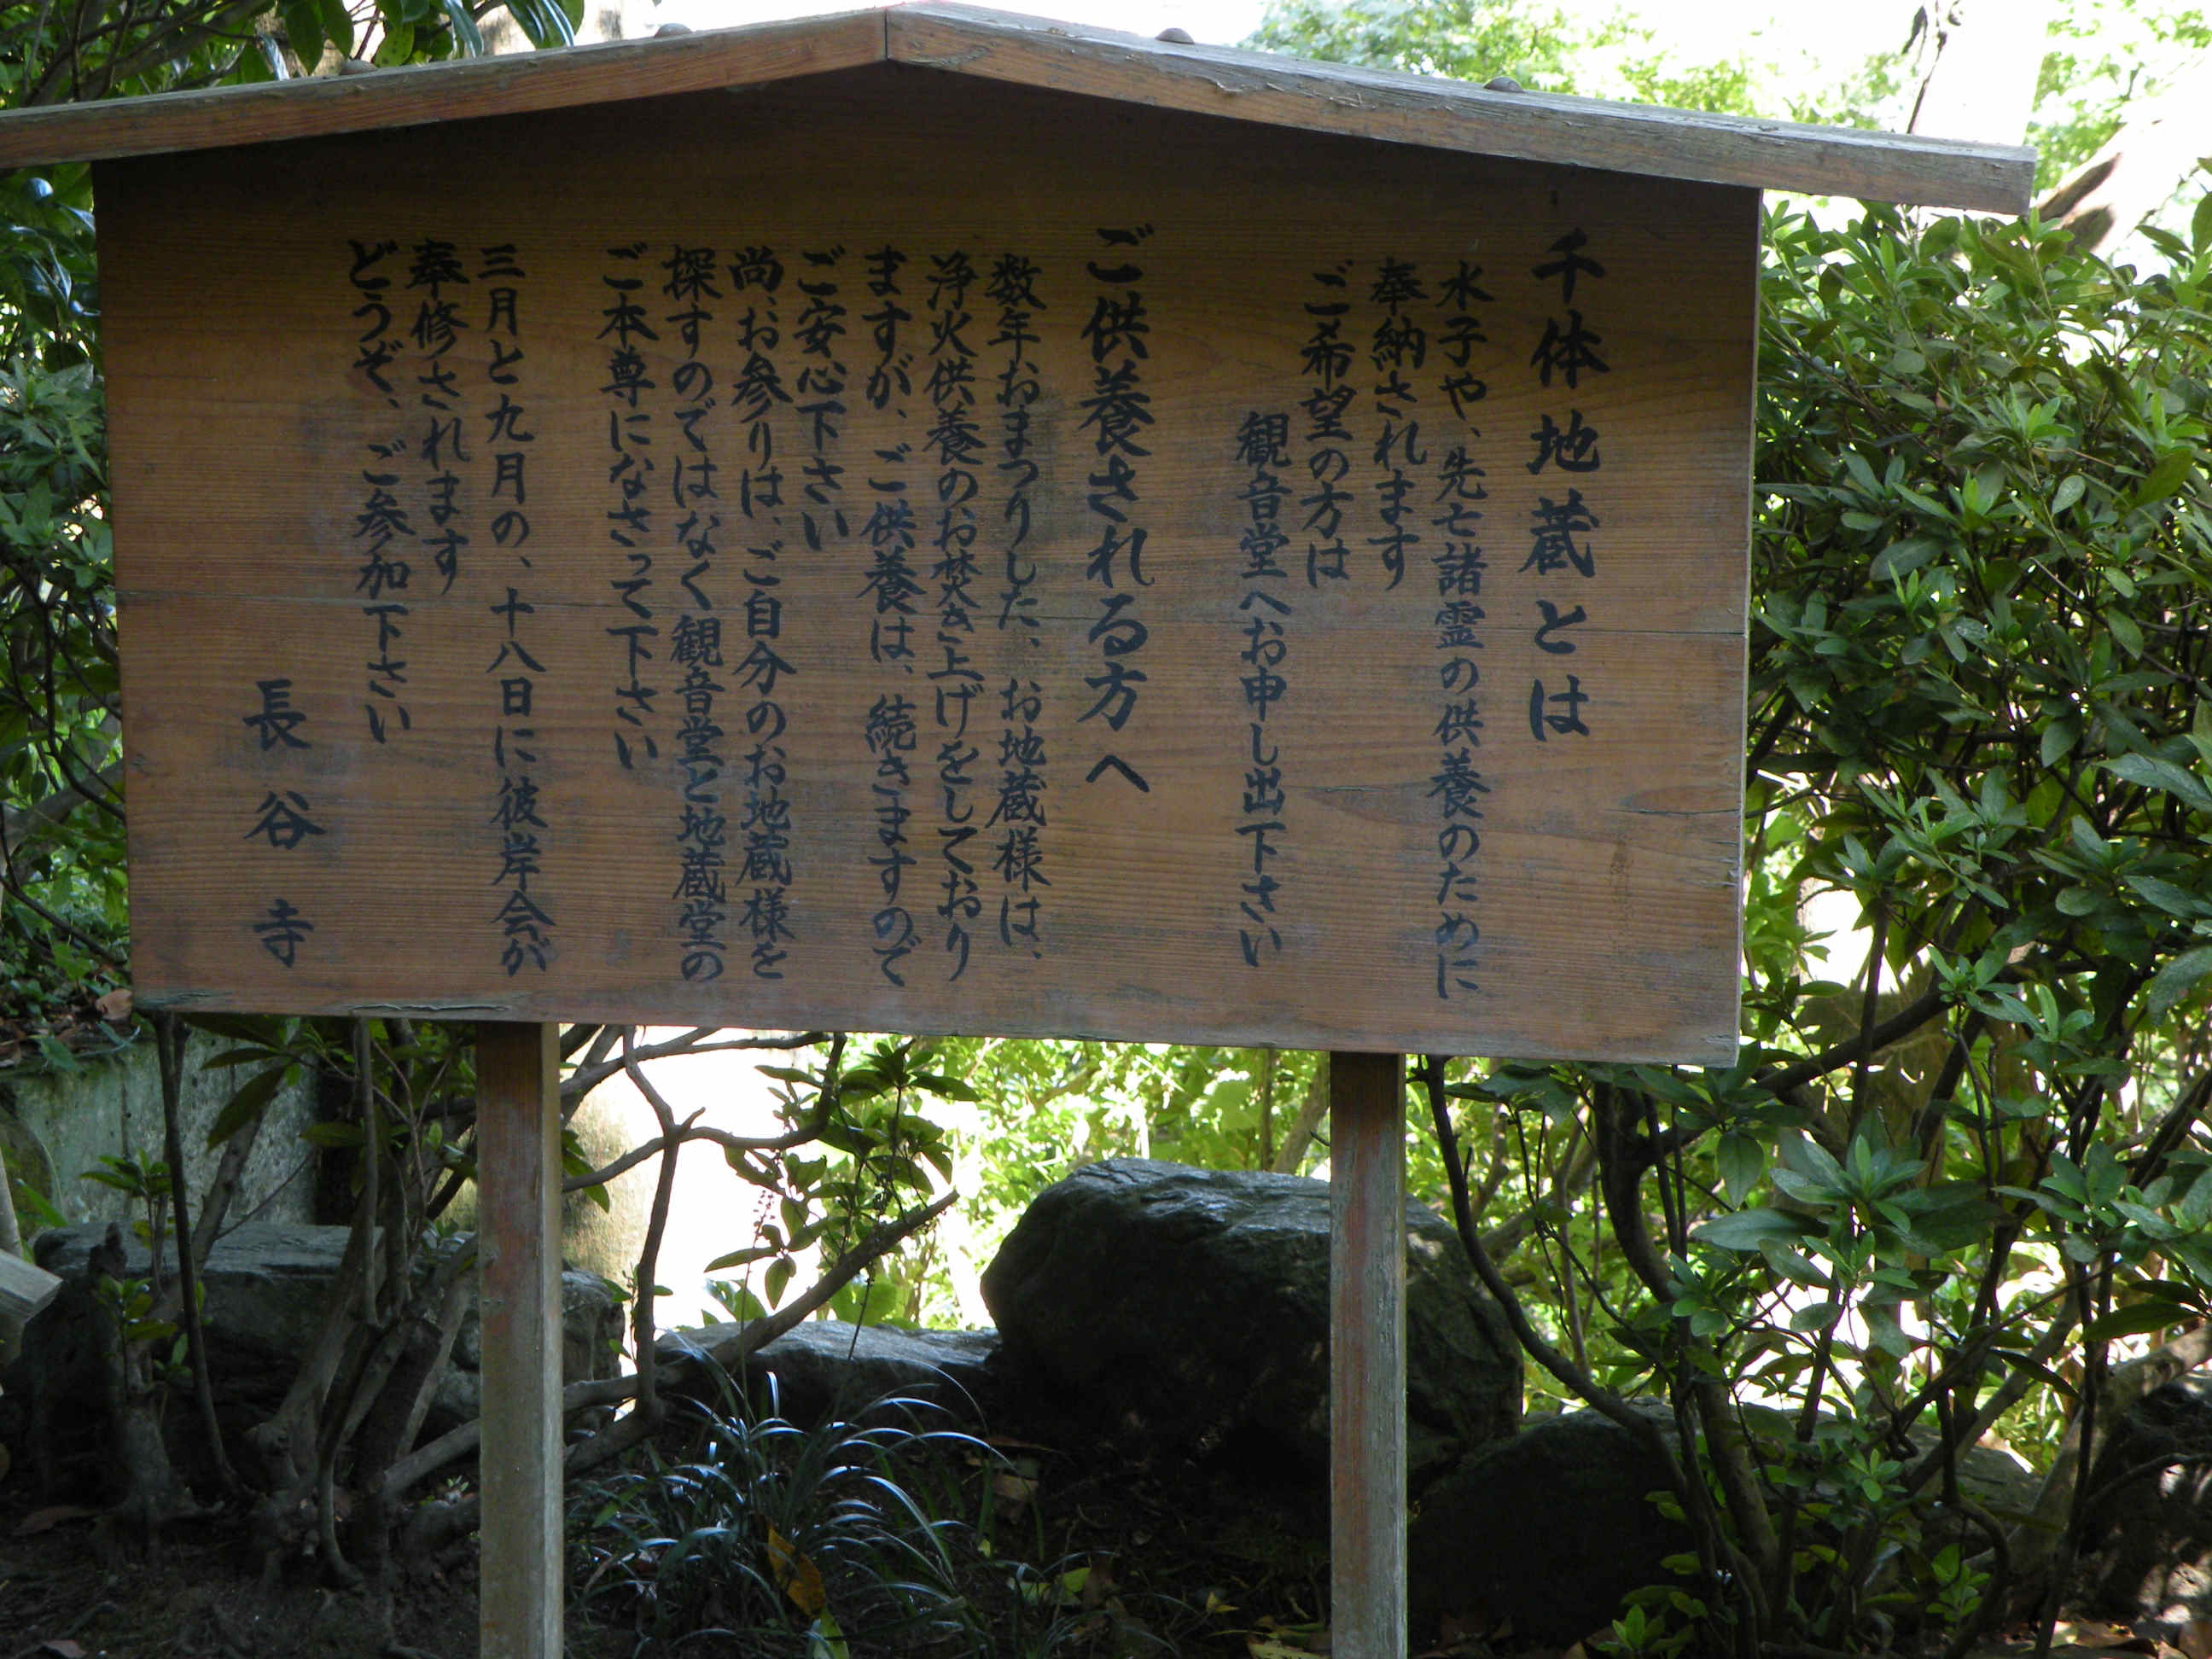 千体地蔵とは
水子や、先亡諸霊の供養のために
奉納されます
ご希望の方は
観音堂へお申し出下さい
ご供養される方へ
数年おまつりした、お地蔵様は、
浄火供養のお焚き上げをしており
ますが、ご供養は、続きますので
ご安心下さい
尚、お参りは、ご自分のお地蔵様を
探すのではなく観音堂と地蔵堂の
ご本尊になさって下さい
三月と九月の、十八日に彼岸会が
奉修されます
どうぞ、ご参加下さい
長谷寺